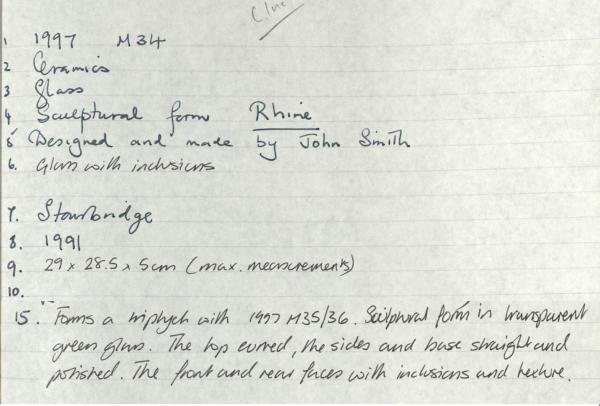 1 1997 M34
2 Ceramics
3 Glass
4 Sculptural form Rhine
5 Designed and made by John Smith
6. Glass with inclusions
7. Stourbridge
8. 1991
9. 29 x 28.5 x 5cm (max. measurements)
10.
15. Forms a triptych with 1997 M35/36. Sculptural form in transparent
green glass. The top curved, the sides and base straight and
polished. The front and rear faces with inclusions and texture.